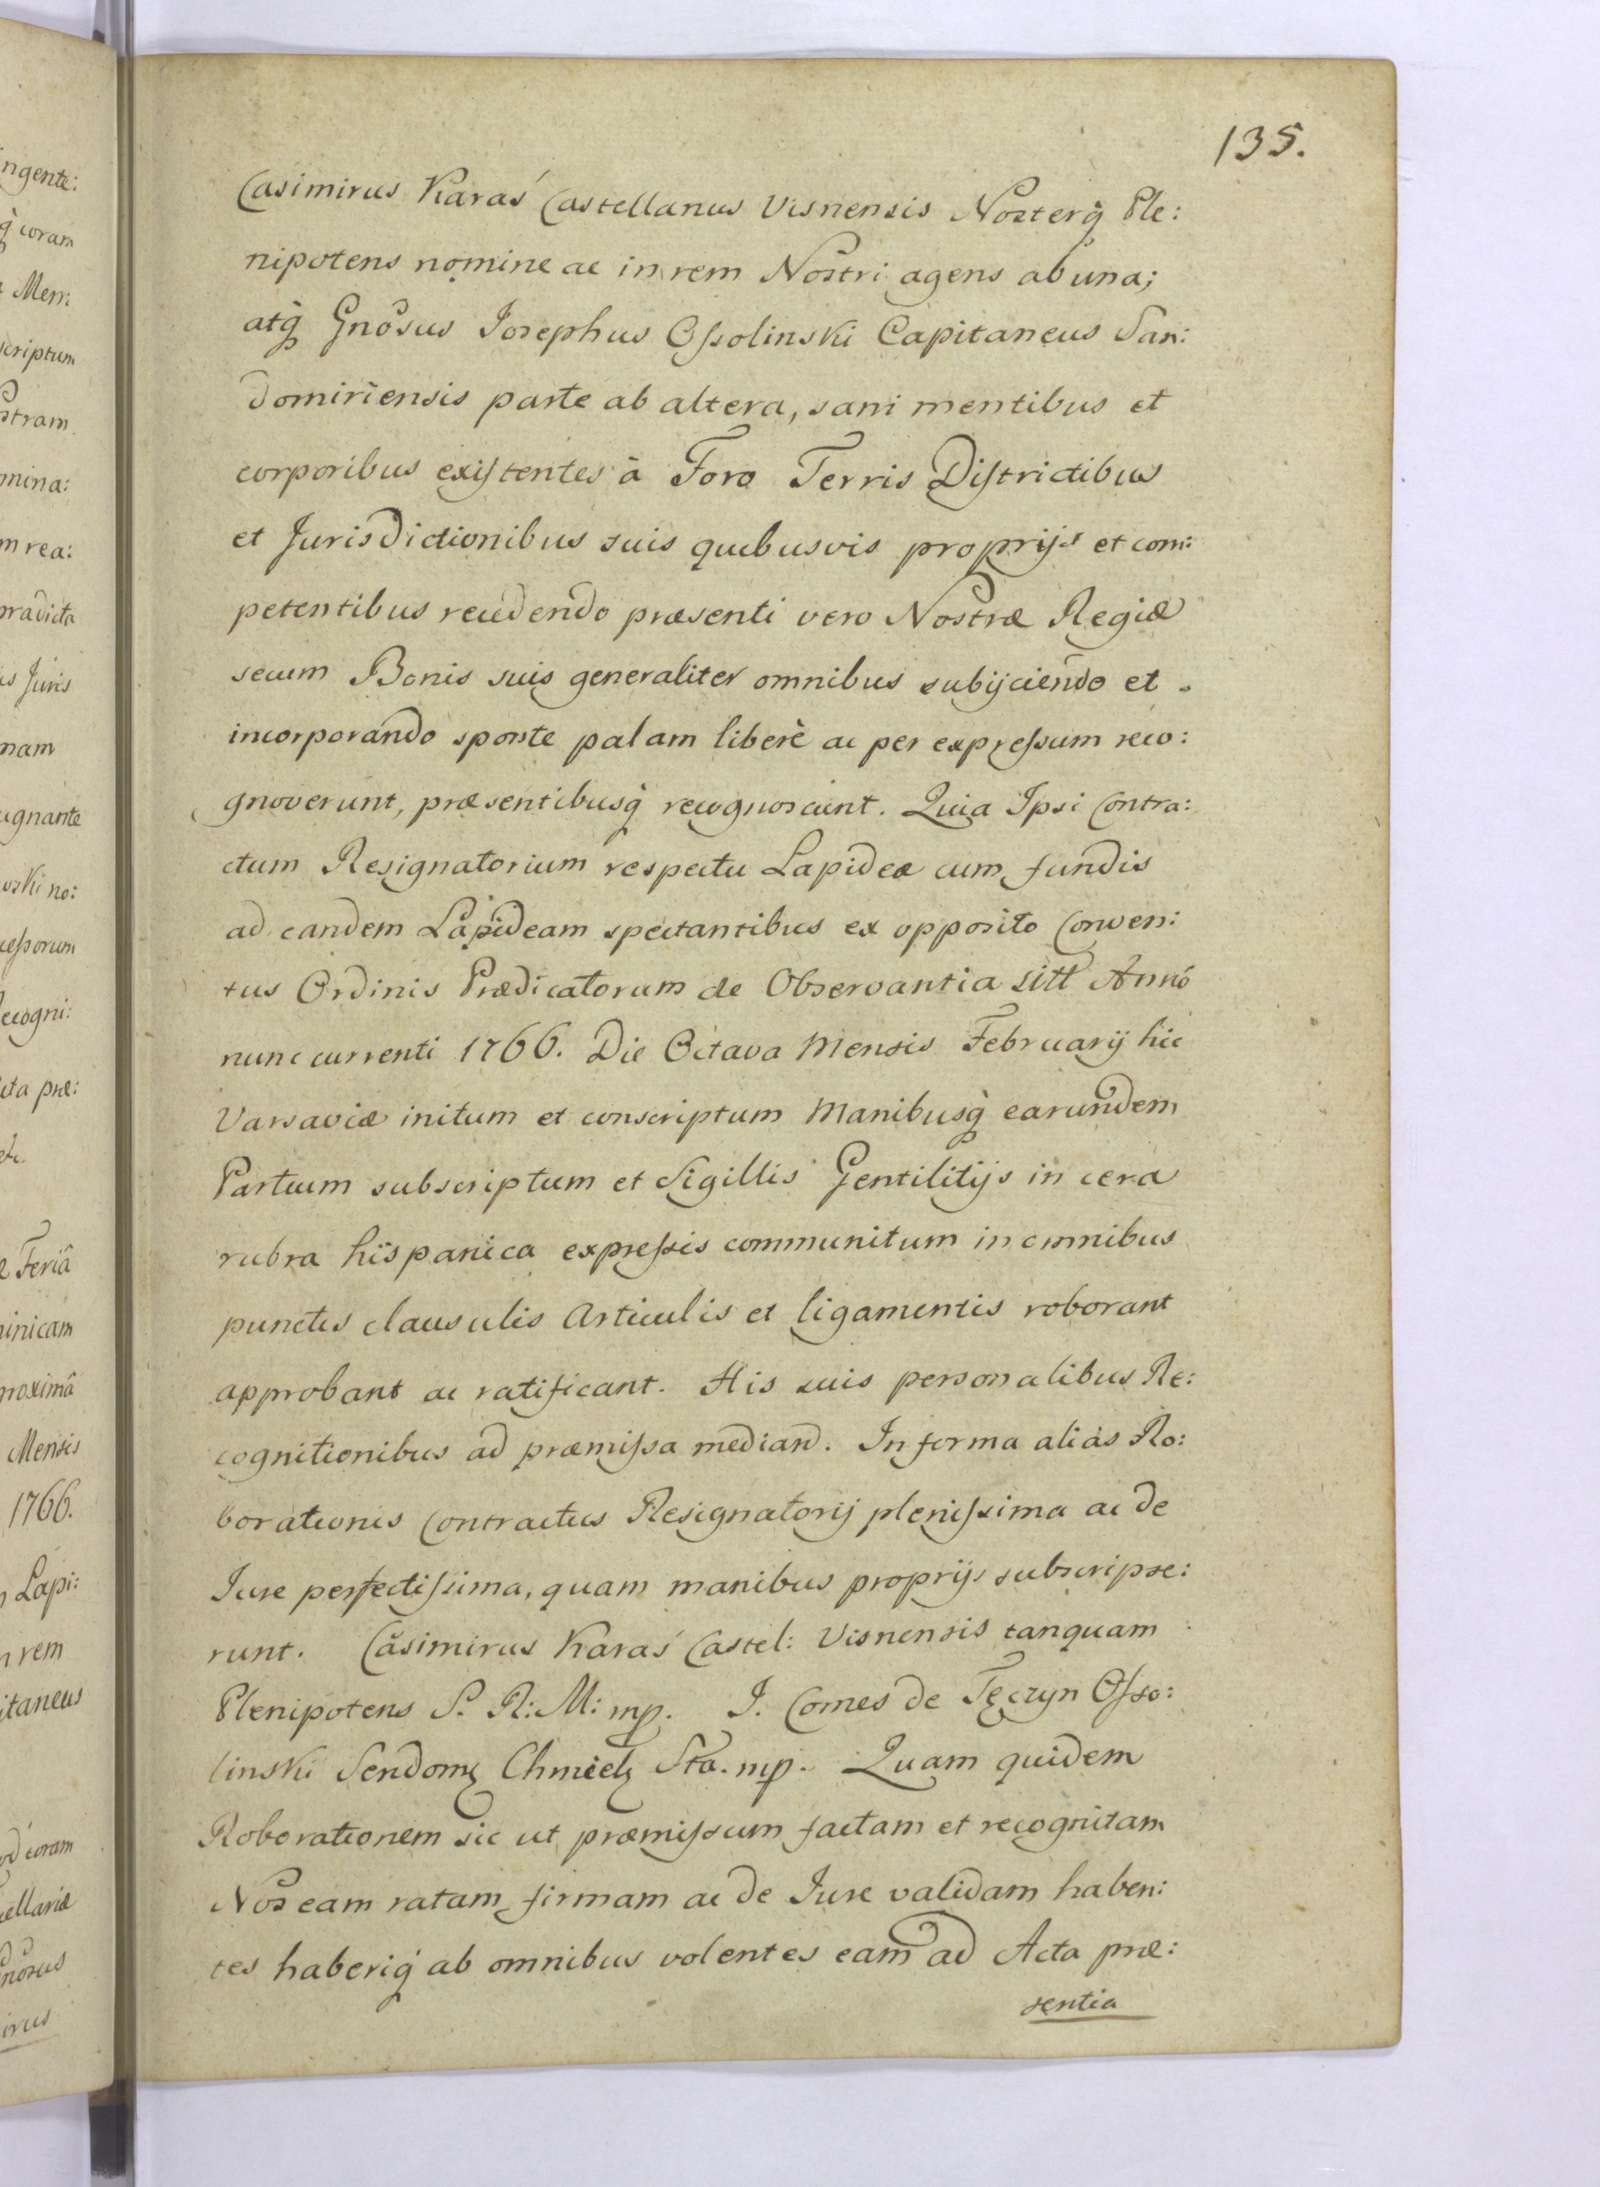 135.
Casimirus Karaś Castellanus Visnensis Nosterq̀ Ple:
nipotens nomine ac in rem Nostri agens ab una;
atq̀ Gnõsus Josephus Ossolinski Capitaneus San:
domiriensis parte ab altera, sani mentibus et
corporibus existentes à Foro Terris Districtibus
et Jurisdictionibus suis quibusvis proprijs et com:
petentibus recedendo præsenti vero Nostræ Regiæ
secum Bonis suis generaliter omnibus subijciendo et
incorporando sponte palam liberè ac per expressum reco:
gnoverunt, præsentibusq̀ recognoscunt. Quia Ipsi Contra:
ctum Resignatorium respectu Lapideæ cum fundis
ad eandem Lapideam spectantibus ex opposito Conven:
tus Ordinis Prædicatorum de Observantia sitt Annó
nunc currenti 1766. Die Octava Mensis February hic
Varsaviæ initum et conscriptum Manibusq̀ earundem
Partium subscriptum et Sigillis Gentilitijs in cera
rubra hispanica expressis communitum in omnibus
punctis clausulis Articulis et ligamentis roborant
approbant ac ratificant. His suis personalibus Re:
cognitionibus ad præmissa mediand. In forma aliàs Ro:
borationis Contractus Resignatorij plenissima ac de
Jure perfectissima, quam manibus proprijs subscripse:
runt. Casimirus Karaś Castel: Visnensis tanquam
Plenipotens S. R: M: mp. J. Comes de Tęczyn Osso:
linski Sendomʒ Chmielʒ Sta. mp. Quam quidem
Roborationem sic ut præmissum factam et recognitam
Nos eam ratam firmam ac de Jure validam haben:
tes haberiq̀ ab omnibus volentes eam ad Acta præ:
sentia
ngente:
q̀ coram
Men:
scriptum
stram
mina:
m rea:
prædicta
is Juris
nam
ugnante
oski no:
cessorum
Recogni:
cta præ:
etc.
Feriâ
inicam
proximâ
Mensis
1766.
Lapi:
n rem
itaneus
od coram
cellariæ
nõsus
irus